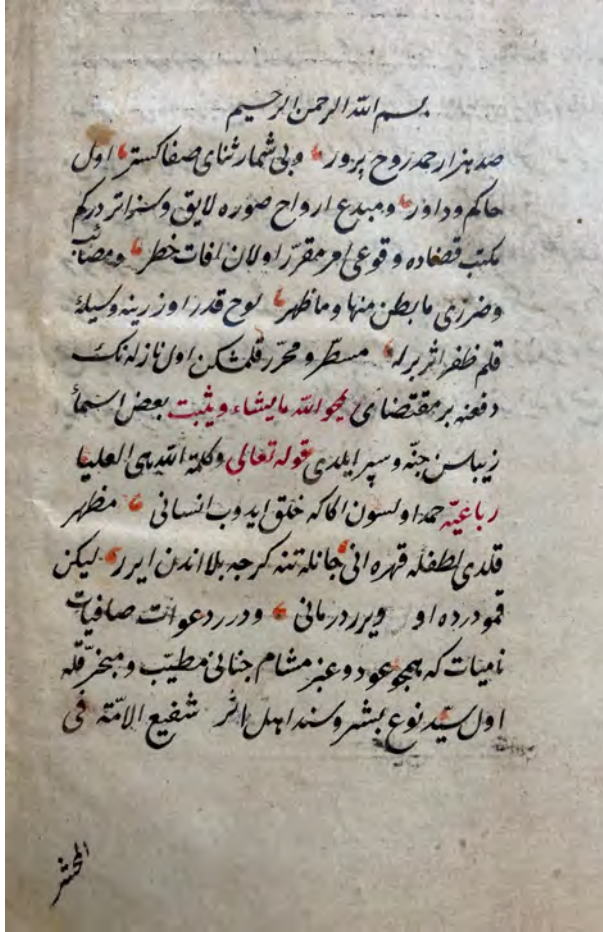 بسم الله الرحمن الرحيم
صد هزار حمد روح پرور و بی شمار ثنای صفا کستر اول
حاکم و داور و مبدع ارواح صوره لایق و سزاتر درکم
مکتب قضاده وقوعی امر مقرر اولان افات خطر و مصائب
وضرری ما بطن منها وما ظهر لوح قدر اوزرینه وسیلهٔ
قلم ظفر اثر برله مسطر و محرر قلمشکن اول نازله نك
دفعنه بر مقتضای یمحو الله ما یشاء ویثبت بعض اسمأ
زیباسن جنّه و سپر ایلدی قوله تعالی وكلمة الله هی العلیا
رباعیّه حمد اولسون اکا که خلق ایدوب انسانی مظهر
قلدی لطفله قهره انی جانله تنه کرچه بلا اندن ایرر لیکن
قمو درده او ویرر درمانی و درر دعوات صافیات
نامیات که همچو عود و عنبر مشام جنانی مطیّب و مبخّر قله
اول سیّد نوع بشر و سند اهل اثر شفیع الامّة فی
المحشر